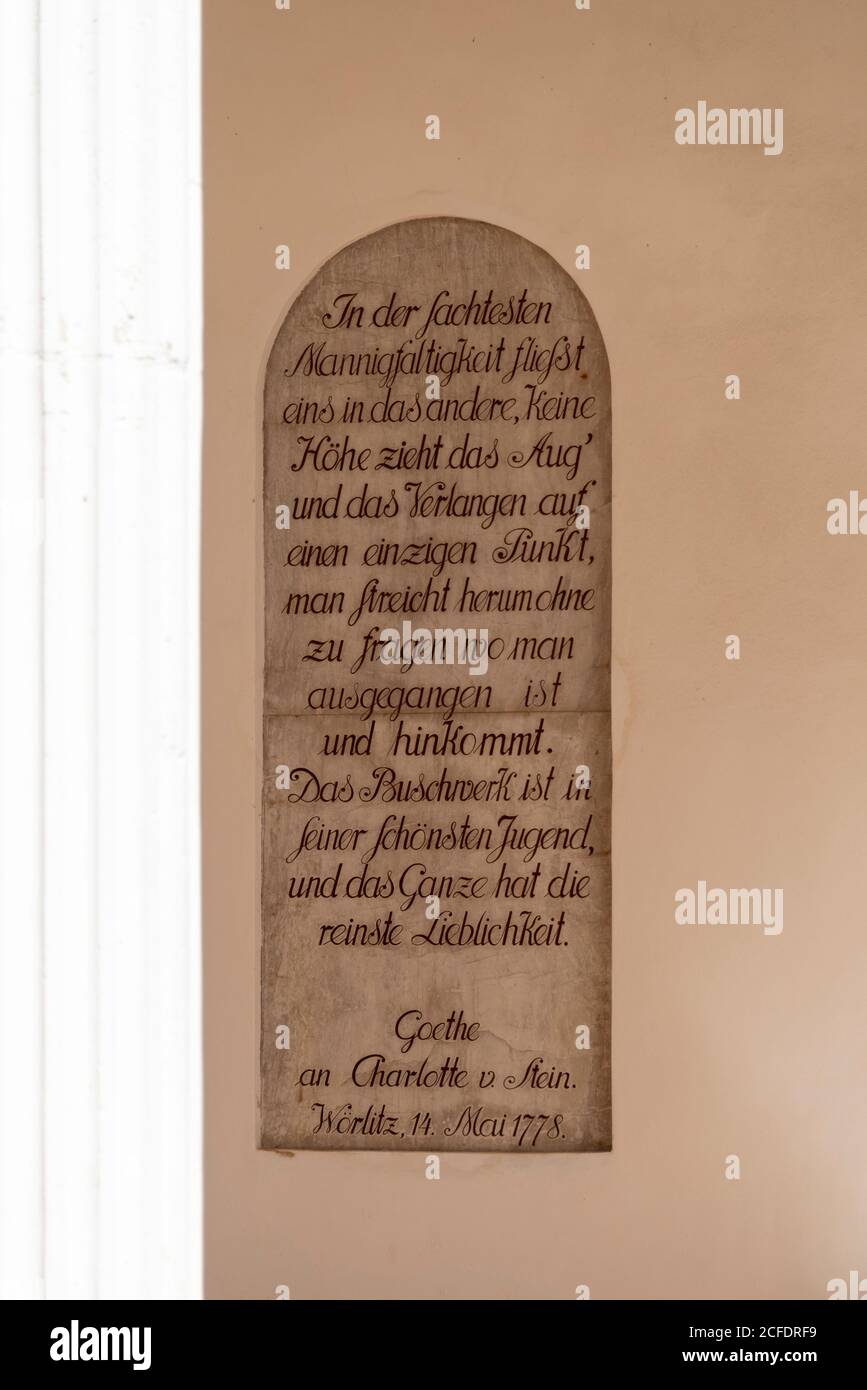 In der sachtesten
Mannigfaltigkeit fließt
eins in das andere, keine
Höhe zieht das Aug'
und das Verlangen auf
einen einzigen Punkt,
man streicht herum ohne
zu fragen wo man
ausgegangen ist
und hinkommt.
Das Buschwerk ist in
seiner schönsten Jugend,
und das Ganze hat die
reinste Lieblichkeit.
Goethe
an Charlotte v. Stein.
Wörlitz, 14. Mai 1778.
alamy
alamy
alamy
a
a
a
a
a
a
a
a
a
a
a
a
alamy
Image ID: 2CFDRF9
www.alamy.com